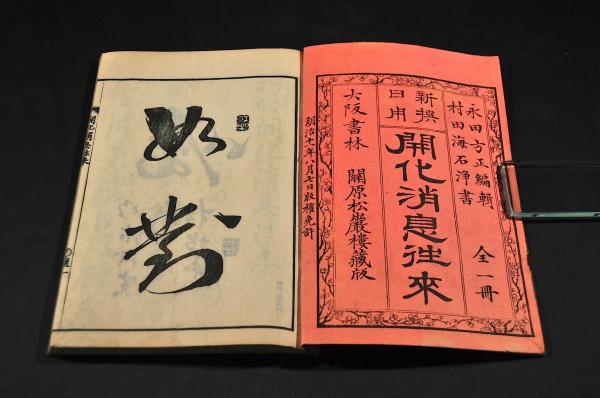 永田方正編輯
村田海石淨書
全一冊
新撰
日用
開化消息往來
大阪書林 關原松巖樓藏版
明治十一年八月七日版權免許
如對
開化消息往來